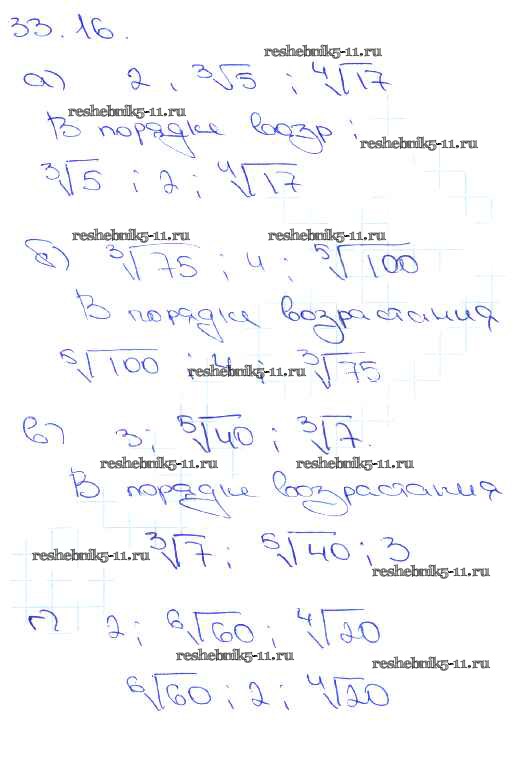 33.16.
reshebnik5-11.ru
а) 2, ∛5; ∜17
reshebnik5-11.ru
В порядке возр:
reshebnik5-11.ru
∛5; 2; ∜17
reshebnik5-11.ru reshebnik5-11.ru
б) ∛75; 4; ⁵√100
В порядке возрастания
⁵√100; 4; ∛75
reshebnik5-11.ru
в) 3; ⁵√40; ∛7.
reshebnik5-11.ru reshebnik5-11.ru
В порядке возрастания
∛7; ⁵√40; 3
reshebnik5-11.ru reshebnik5-11.ru
г) 2; ⁶√60; ∜20
reshebnik5-11.ru reshebnik5-11.ru
⁶√60; 2; ∜20